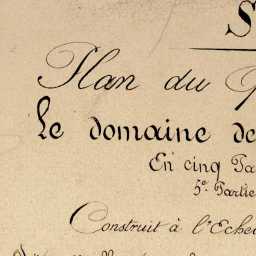 S
Plan du
Le domaine de
En cinq Ta
5e Partie
Construit à l'Eche